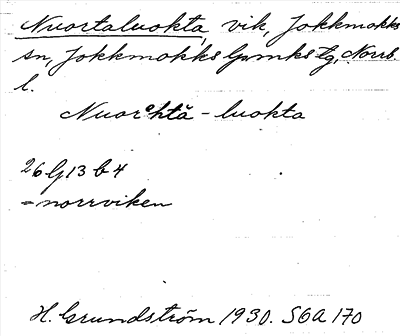 Nuortaluokta, vik, Jokkmokks
sn, Jokkmokks lpmks tg, Norrb.
l.
Nuorꜝhtă-luokta
26 G 13 b 4
= norrviken
H. Grundström 1930. SOA 170